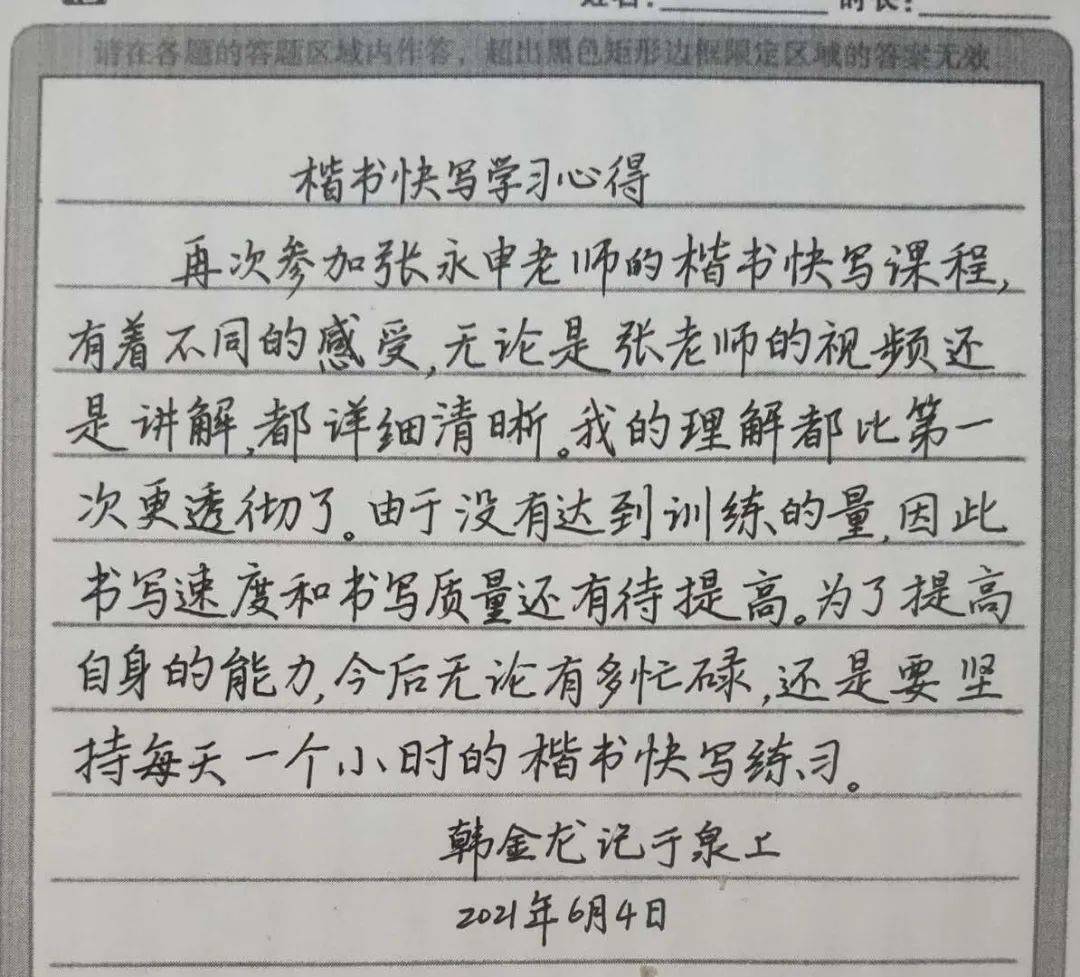 姓名：________ 时长：________
请在各题的答题区域内作答，超出黑色矩形边框限定区域的答案无效
楷书快写学习心得
再次参加张永申老师的楷书快写课程，
有着不同的感受，无论是张老师的视频还
是讲解，都详细清晰。我的理解都比第一
次更透彻了。由于没有达到训练的量，因此
书写速度和书写质量还有待提高。为了提高
自身的能力，今后无论有多忙碌，还是要坚
持每天一个小时的楷书快写练习。
韩金龙记于泉上
2021年6月4日